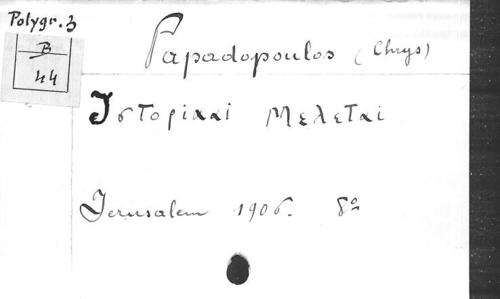 Polygr. 3
B
44
Papadopoulos (Chrys)
Ἱστορικαί Μελεται
Jerusalem 1906. 8º